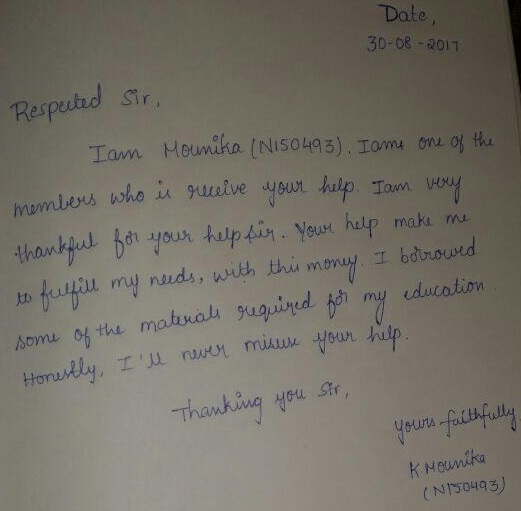 Date,
30-08-2017
Respected Sir,
Iam Mounika (N150493). Iame one of the
members who is receive your help. Iam very
thankful for your help sir. Your help make me
to fulfill my needs, with this money. I borrowed
some of the materials required for my education.
Honestly, I'll never misuse your help.
Thanking you Sir,
yours faithfully
K.Mounika
(N150493)